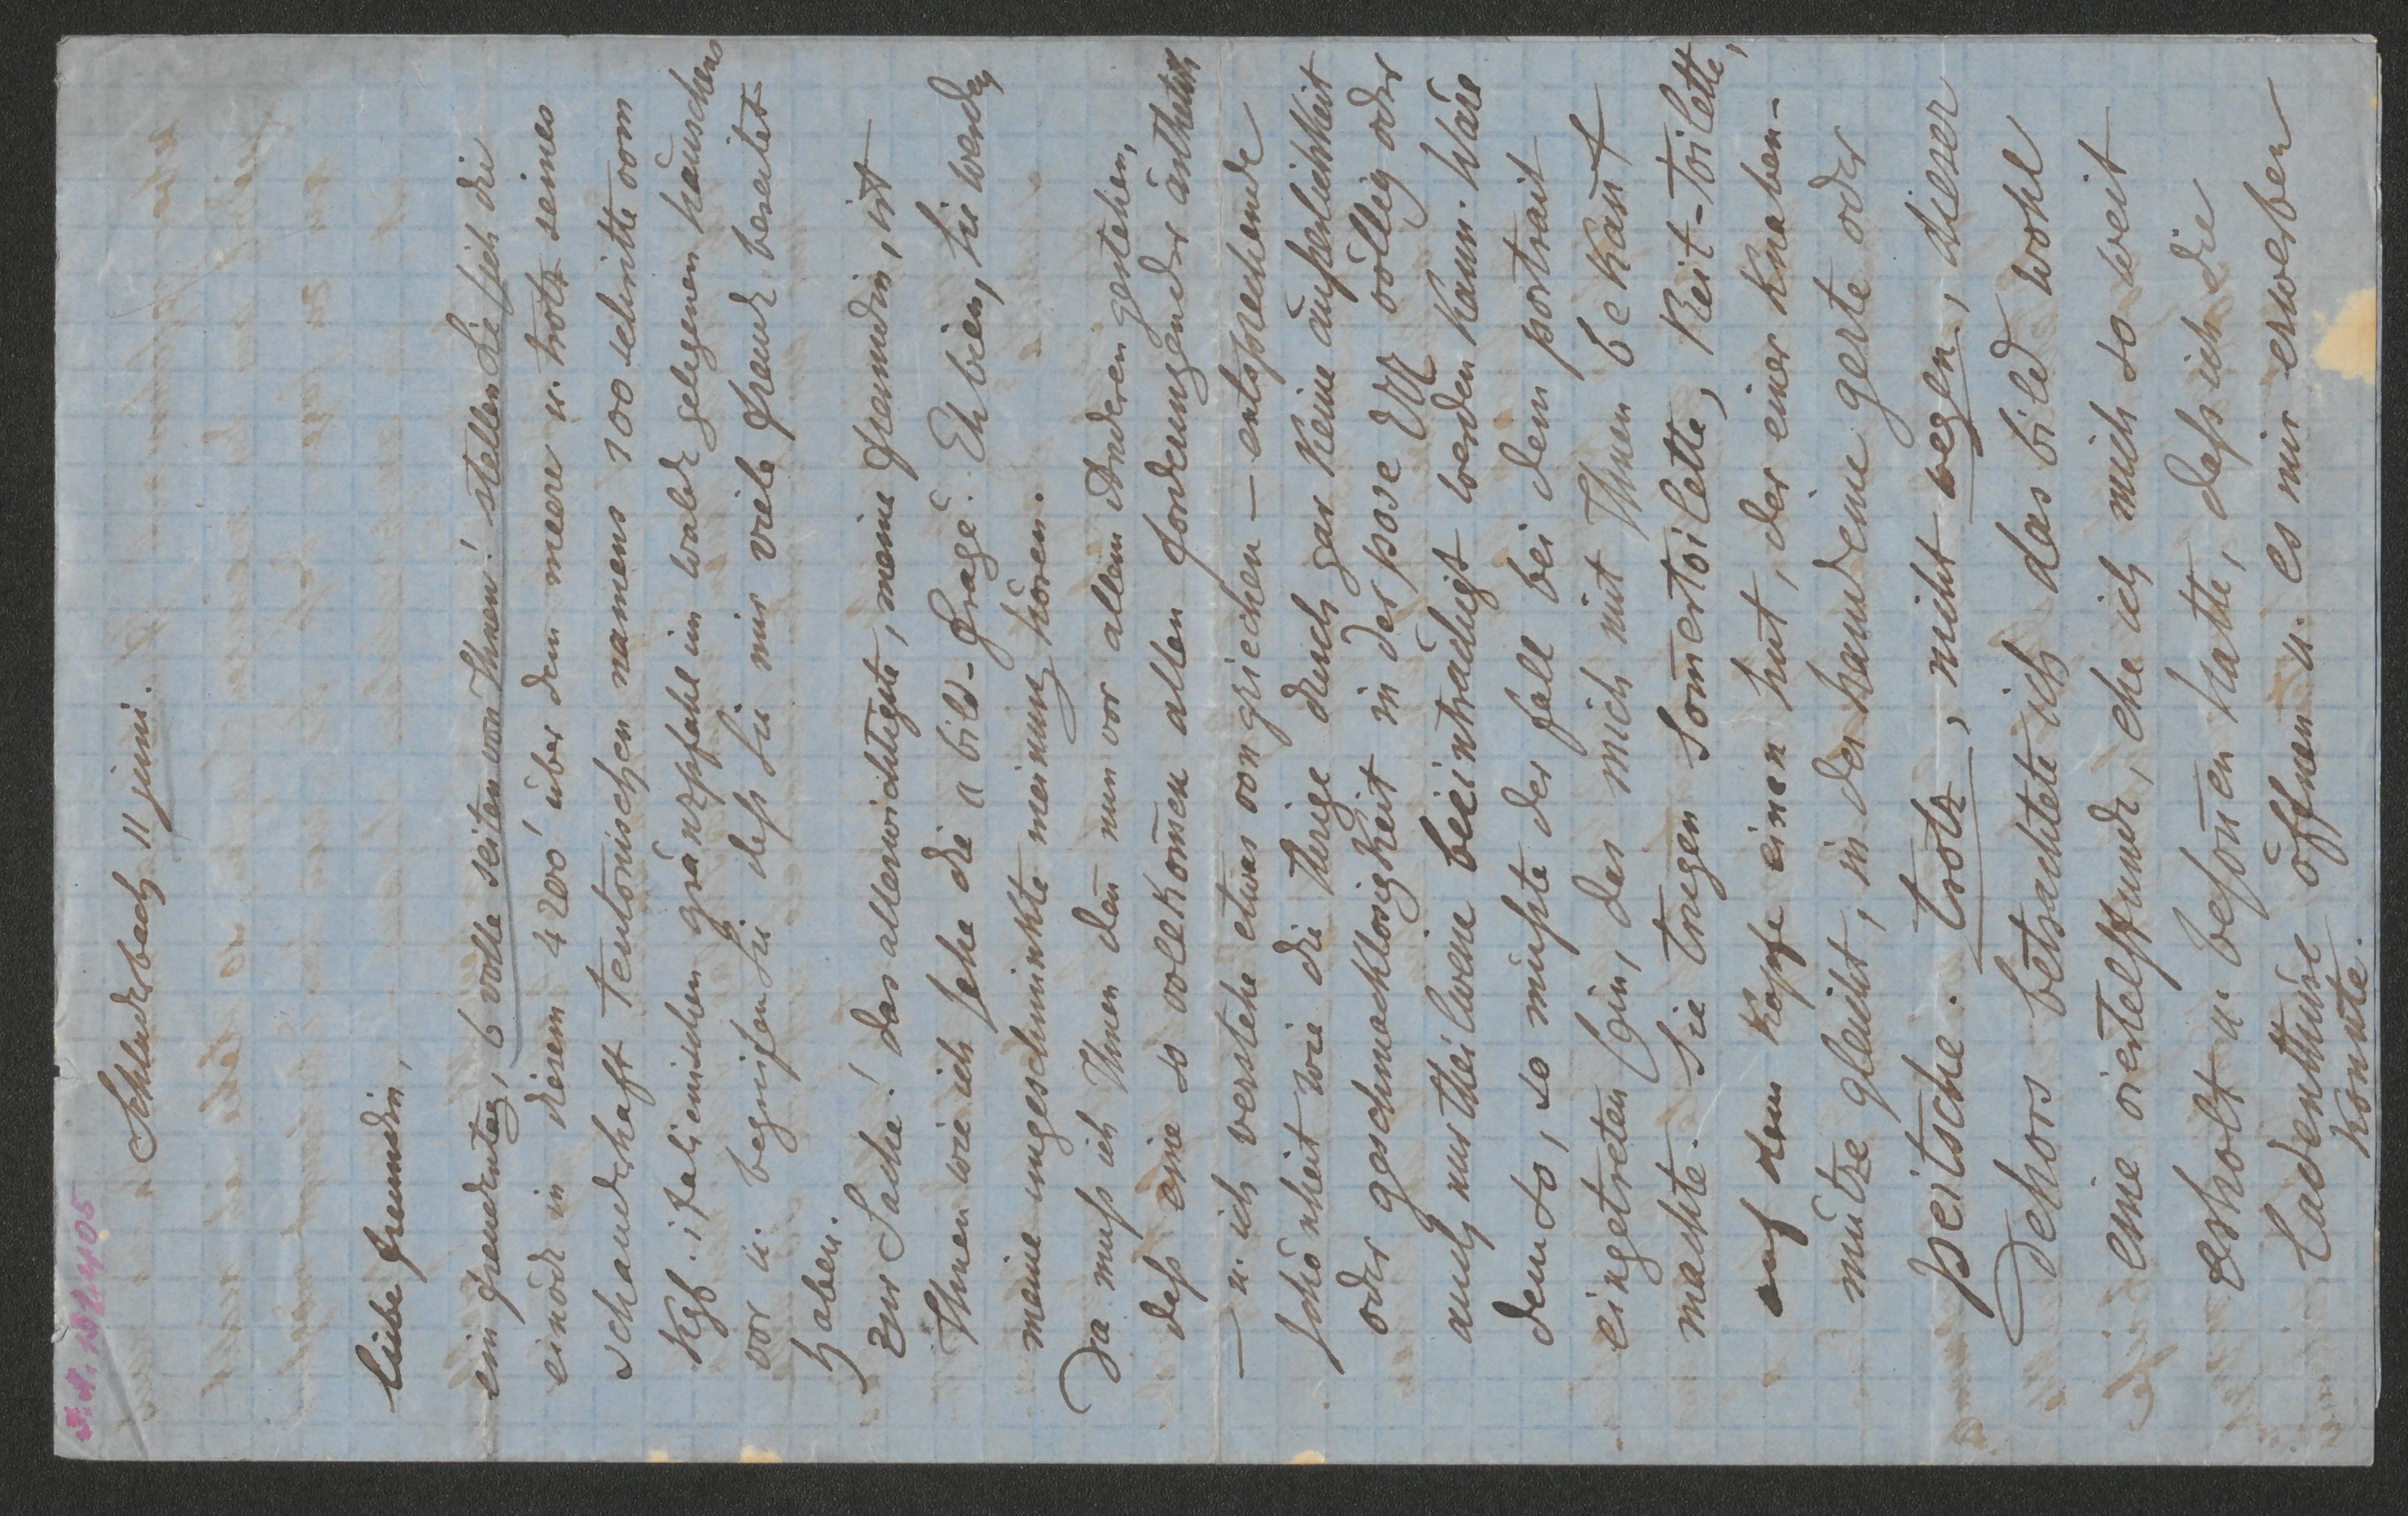 I.N. 197.405
Schluderbach 11 juni.
liebe freundin,
ein freudentag, 6 volle seiten von Ihnen! stellen Sie sich die
einöde in diesem 4200' über dem meere u. trotz seines
schauderhaft teutonischen namens 100 schritte vom
Kgl. italienischen gränzpfahl im walde gelegenen häuschens
vor u. begreifen Sie dass Sie mir viele freude bereitet
haben.
zur Sache! das allerwichtigste, meine freundin, ist
Ihnen wie ich sehe die "bild-frage". Eh bien, Sie werden
meine ungeschminkte meinung hören.
Da muss ich Ihnen den nun vor allem Anderen gestehen,
dass eine so volkomen allen forderungen der ästhetik
– u. ich verstehe etwas von griechen – entsprechende
schönheit wie die Ihrige durch gar keine äußerlichkeit
oder geschmacklosigkeit in der pose etc völlig oder
auch nur theilweise beeinträchtigt werden kann. wäre
dem so, so müßte der fall bei dem portrait
eingetreten sein, das mich mit Ihnen bekañt
machte. Sie trugen Som̄ertoilette, Reit-toilette,
auf dem kopfe einen hut, der einer knaben-
mütze gleicht, in der hand eine gerte oder
peitsche. trotz, nicht wegen, dieser
Dehors betrachtete ich das bild wohl
eine viertelstunde, ehe ich mich so weit
erholt u. besoñen hatte, daß ich die
ladenthüre öffnen u. es mir erwerben
konnte.